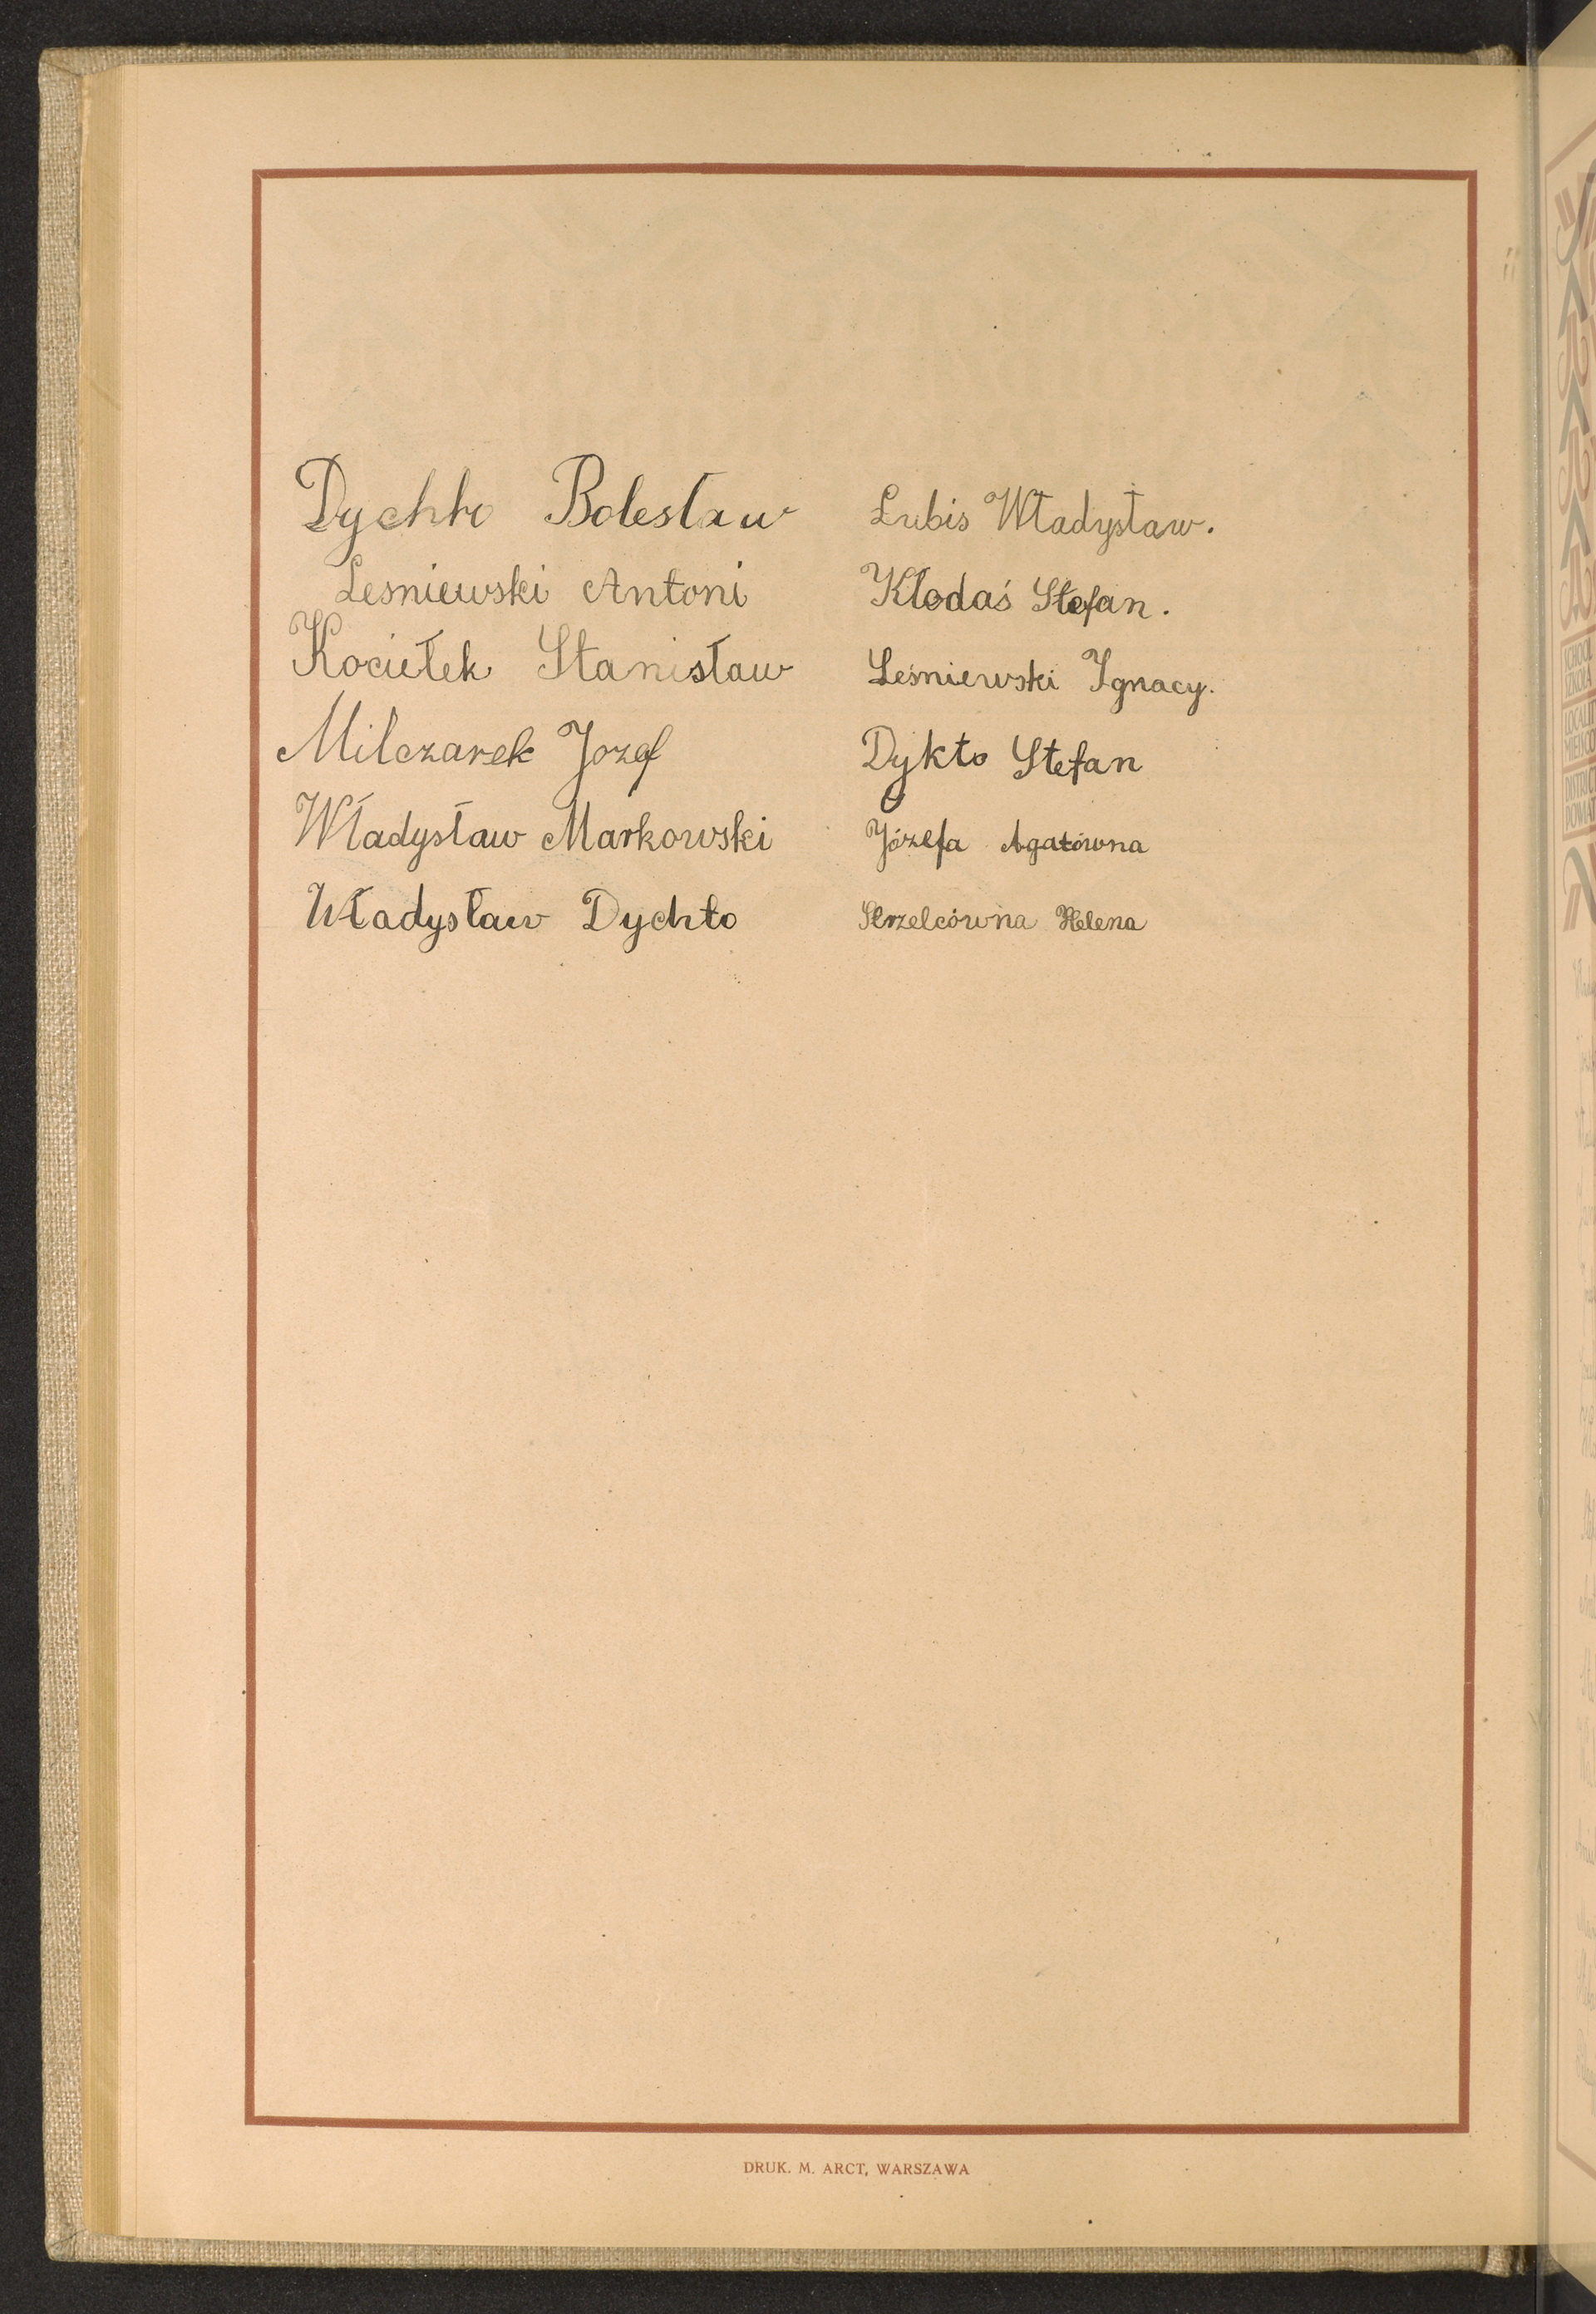 Dychło Bolesław
Lesniewski Antoni
Kociełek Stanisław
Milczarek Jozef
Władysław Markowski
Władysław Dychto
Lubis Władysław.
Kłodaś Stefan.
Leśniewski Ignacy.
Dykto Stefan
Józefa Agatówna
Strzelcówna Helena
DRUK. M. ARCT, WARSZAWA